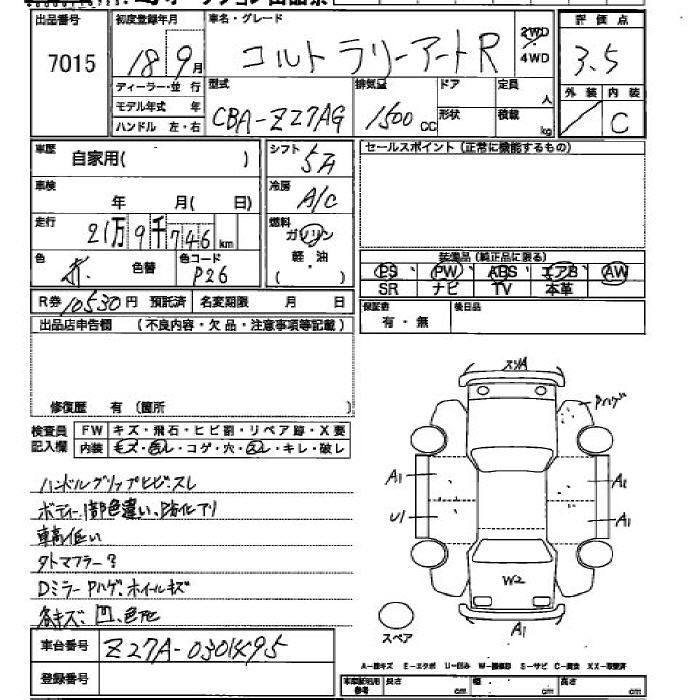 出品番号 7015
初度登録年月 18 9月
車名・グレード コルト ラリーアート R 2WD 4WD
評価点 3.5
外装 内装 C
ディーラー・並 行
モデル年式 年
ハンドル 左・右
型式 CBA-Z27AG
排気量 1500 CC
ドア
形状
定員 人
積載 kg
車歴 自家用( )
シフト 5F
セールスポイント (正常に機能するもの)
車検 年 月( 日)
冷房 A/C
走行 21万9千746km
燃料 ガソリン 軽・油 ( )
色 赤 色替 色コード P26
装備品 (純正品に限る)
PS PW ABS エアB AW
SR ナビ TV 本革
R券 10530円 預託済 名変期限 月 日
保証書 有・無
後日品
出品店申告欄 (不良内容・欠品・注意事項等記載)
修復歴 有 (箇所 )
検査員記入欄
FW キズ・飛石・ヒビ割・リペア跡・X要
内装 モズ・汚レ・コゲ・穴・スレ・キレ・破レ
ハンドルグリップヒビ.スレ
ボディー1部色違い、劣化アリ
車高低い
タトマフラー?
Dミラー Pハゲ、ホイールキズ
各キズ、凹、色アセ
車台番号 Z27A-0301495
登録番号
スリA
Pハゲ
A1
A1
U1
A1
W2
A1
スペア
A-線キズ E-エクボ U-凹み W-補修跡 S-サビ C-腐食 XX-交換済
長さ cm 幅 cm 高さ cm